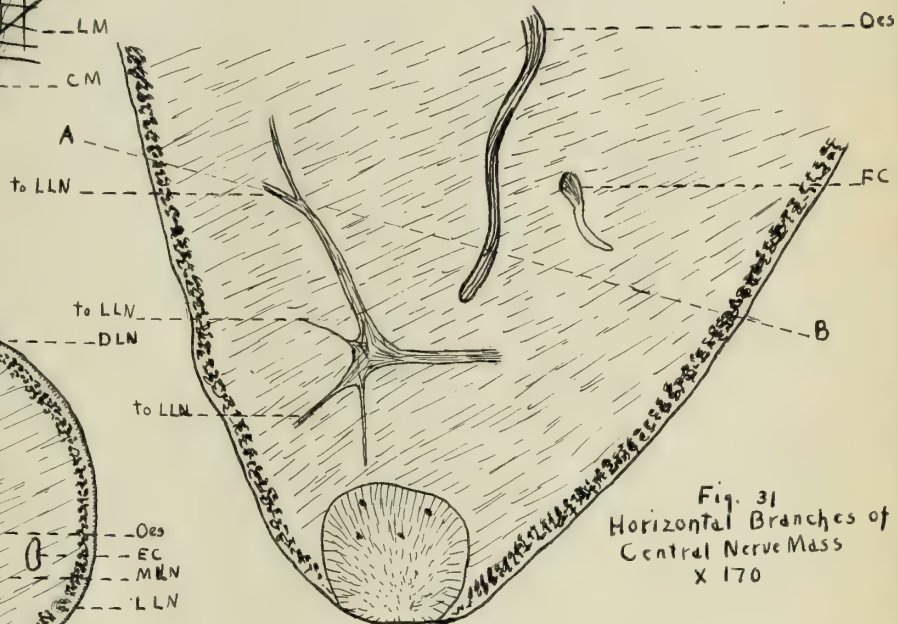 LM
CM
A
to LLN
to LLN
DLN
to LLN
Oes
EC
MLN
LLN
Oes
EC
B
Fig. 31
Horizontal Branches of
Central Nerve Mass
X 170